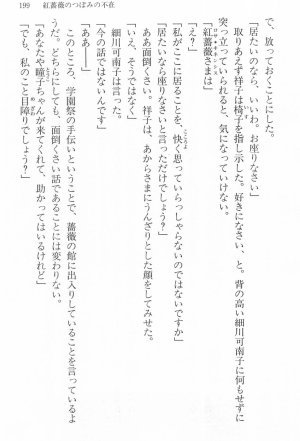 199　紅薔薇のつぼみの不在
で、放っておくことにした。
「居たいのなら、いいわ。お座りなさい」
取りあえず祥子は椅子を指し示した。好きになさい、と。背の高い細川可南子に何もせずに
突っ立っていられると、気になっていけない。
「紅薔薇さまは」
「え？」
「私がここに居ることを、快く思っていらっしゃらないのではないですか」
「居たいなら座りなさいと言っただけでしょう？」
ああ面倒くさい。祥子は、あからさまにうんざりとした顔をしてみせた。
「いえ、そうではなく」
細川可南子は言った。
「今の話ではなくて」
「ああ――」
このところ、学園祭の手伝いということで、薔薇の館に出入りしていることを言っているよ
うだ。どちらにしても、面倒くさい話であることには変わりない。
「あなたや瞳子ちゃんが来てくれて、助かってはいるけれど」
「でも、私のこと目障りでしょう？」